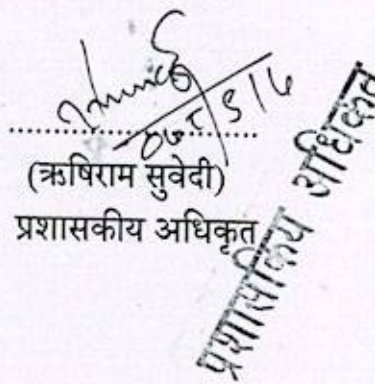 (ऋषिराम सुवेदी)
प्रशासकीय अधिकृत
प्रशासकिय अधिकृत